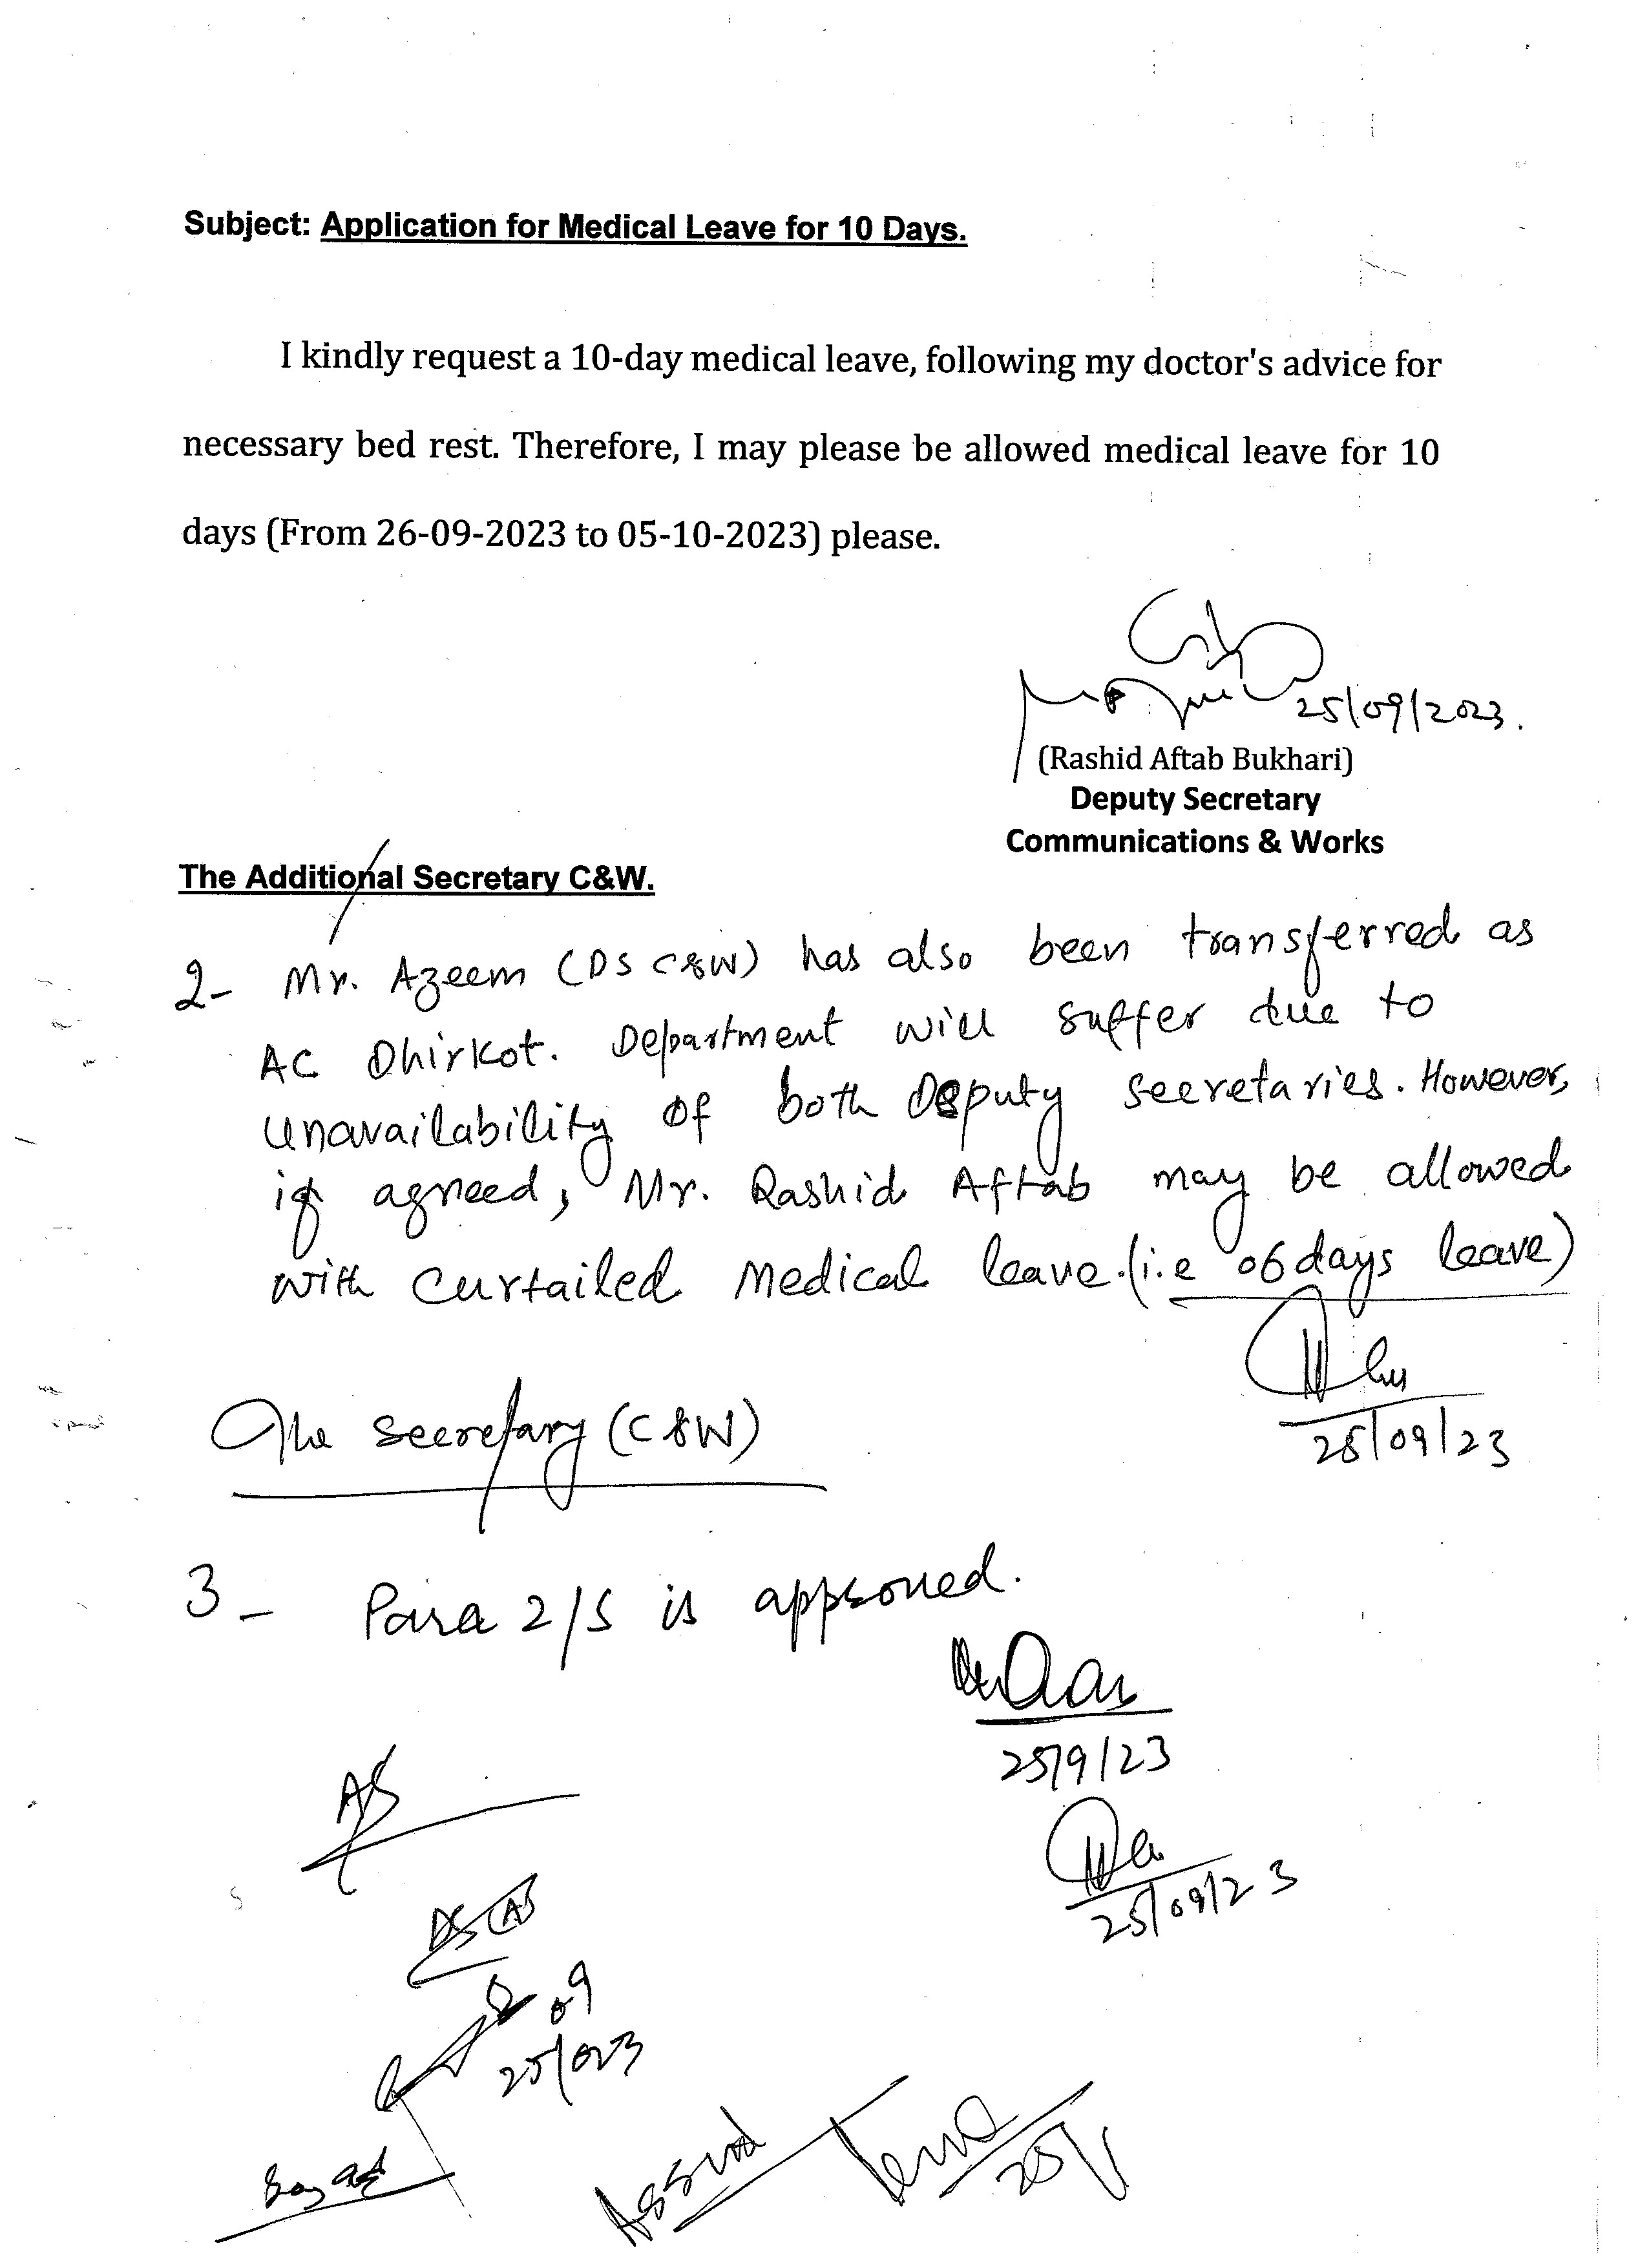 Subject: Application for Medical Leave for 10 Days.
I kindly request a 10-day medical leave, following my doctor's advice for
necessary bed rest. Therefore, I may please be allowed medical leave for 10
days (From 26-09-2023 to 05-10-2023) please.
25/09/2023.
(Rashid Aftab Bukhari)
Deputy Secretary
Communications & Works
The Additional Secretary C&W.
2- Mr. Azeem (DS C&W) has also been transferred as
AC Dhirkot. Department will suffer due to
unavailability of both Deputy secretaries. However,
if agreed, Mr. Rashid Aftab may be allowed
with curtailed Medical leave.(i.e 06 days leave)
25/09/23
The Secretary (C&W)
3- Para 2/S is approved.
25/9/23
AS
25/09/23
DS (A)
09
25/023
25/